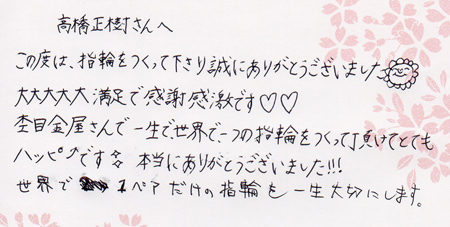 高橋正樹さんへ
この度は、指輪をつくって下さり誠にありがとうございました
大大大大大満足で感謝感激です♡♡
杢目金屋さんで一生で、世界で一つの指輪をつくって頂けてとても
ハッピーです☆ 本当にありがとうございました!!!
世界で 1ペアだけの指輪を一生大切にします。